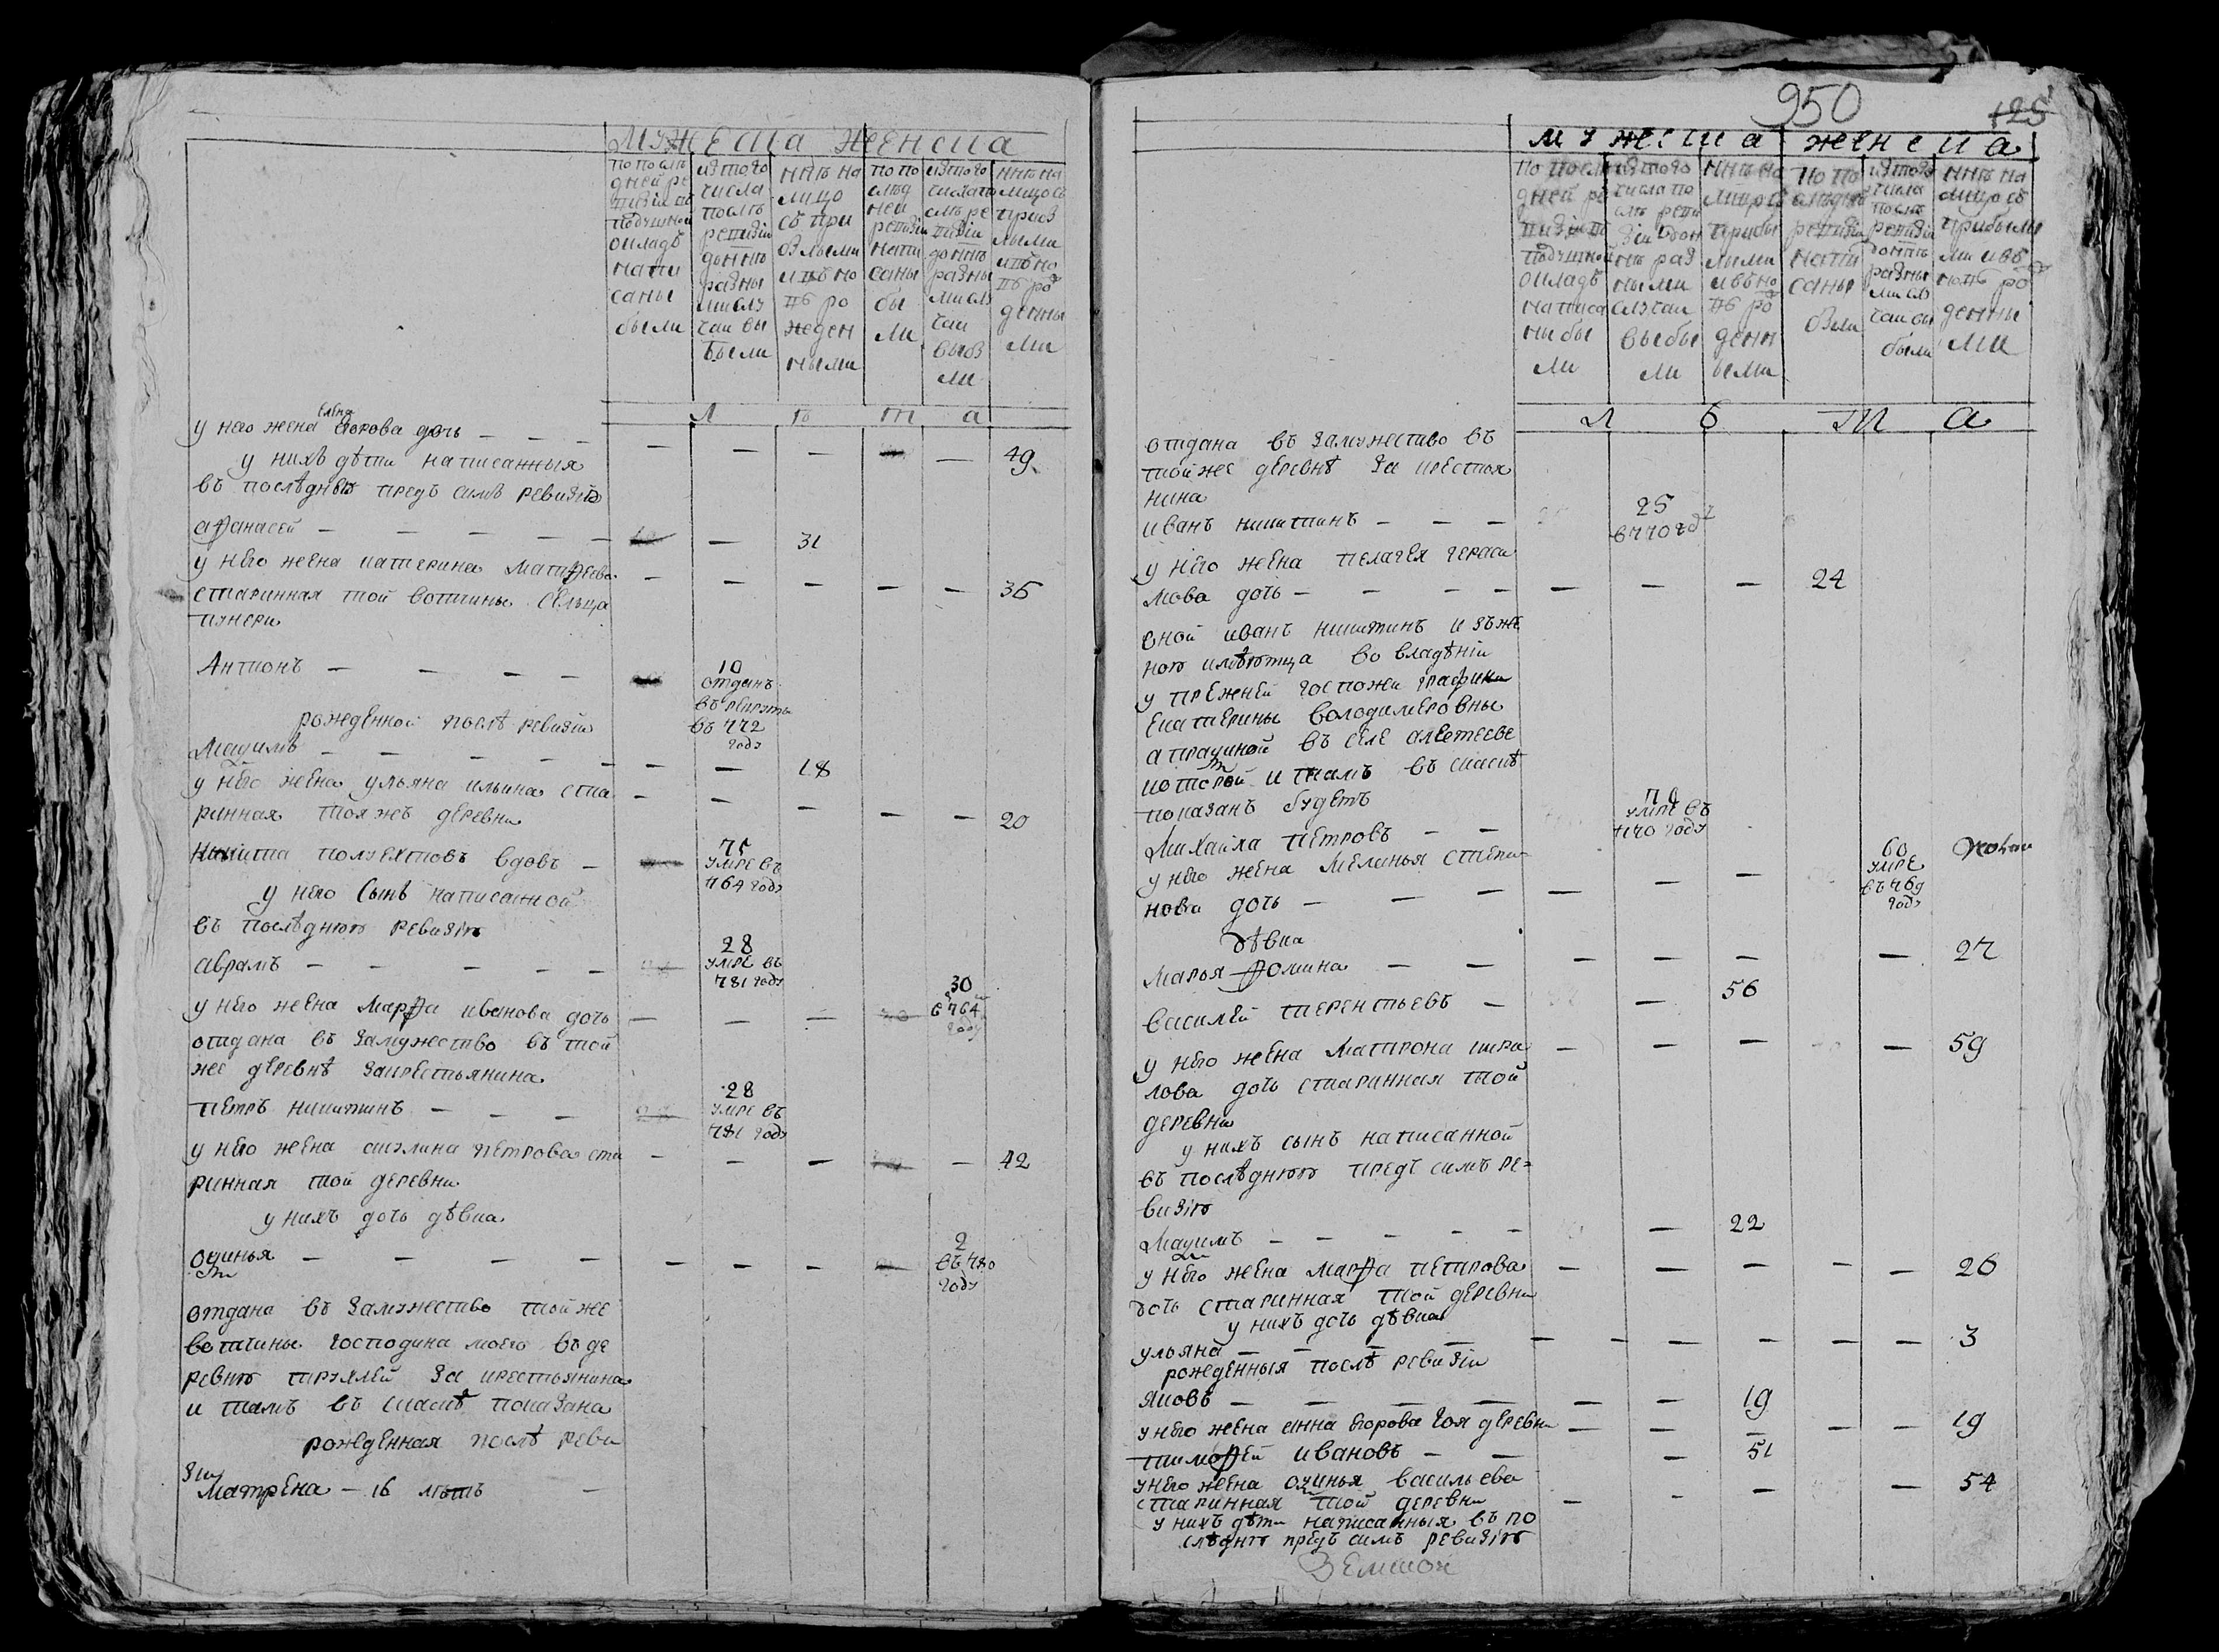 мужеска женска
по послѣ
дней ре
визіи въ
подушной
окладъ
напи
саны
были
изтого
числа
послѣ
ревизіи
донынѣ
разны
мислу
чаи вы
были
нынѣ на
лицо
съ при
былыми
ивъ но
въ ро
жден
ными
по по
слѣд
ней
ревизіи
напи
саны
бы
ли
изтого
числапо
слѣ ре
визіи
донынѣ
разны
мислу
чаи
выбы
ли
нынѣ на
лицо съ
прибы
лыми
ивъ но
въ ро
денны
ми
л ѣ т а
у него жена Елена Егорова дочь — — — — — — — — 49
у нихъ дѣти написанныя
въ послѣднюю предъ симъ ревизію
афанасей — — — — — — 31
у него жена катерина матфеева — — — — — 36
старинная той вотчины сельца
Антипъ — — — — 10
отданъ
въ рекруты
въ 772
году
рожденной послѣ ревизіи
Макимъ — — — — — — — 18
у него жена ульяна ильина ста — — — — — 20
ринная тояжъ деревни
Никита полуехтовъ вдовъ — 75
умре въ
764 году
у него сынъ написанной
въ послѣднюю ревизію
аврамъ — — — — — 28
умре въ
781 году
у него жена Марфа иванова дочь — — — 30
в 764м
году
отдана въ замужество въ той
же деревнѣ закрестьянина
петръ никитинъ — — — 28
умре въ
781 году
у него жена акулина петрова ста — — — — 42
ринная той деревни
у нихъ дочь дѣвка
оксинья — — — — — — — 2
въ 780
году
отдана въ замужество тойже
вотчины господина моего въде
ревню трухлей за крестьянина
и тамъ въ скаскѣ показана
рожденная послѣ реви
зіи
Матрена — 16 лѣтъ —
950
125
мужеска женска
по послѣ
дней ре
визіи въ
подушной
окладъ
написа
ны бы
ли
изтого
числа по
слѣ реви
зіи дон
нѣ раз
ными
случаи
выбы
ли
нынѣ на
лицо съ
прибы
лыми
ивъ но
въ ро
денн
ыми
по по
слѣдней
ревизіи
напи
саны
были
изтого
числа
послѣ
ревизіи
донынѣ
разны
мислу
чаи вы
были
нынѣ на
лицо съ
прибылы
ми ивъ
новъ ро
денны
ми
л ѣ т а
отдана въ замужество въ
тойже деревнѣ за крестья
нина
иванъ никитинъ — — — 25
в 770 году
у него жена пелагея гераси
мова дочь — — — — — — — 24
оной иванъ никитинъ и зъже
ною имѣютца во владѣніи
у прежней госпожи графини
екатерины володимеровны
апраксиной въ селе алексееве
которой и тамъ въ скаскѣ
показанъ будетъ
Михайла петровъ — — умре въ
770 году
у него жена Меланья степа
нова дочь — — — — — — 60
умре
въ 769
году
дѣвка
Марья фомина — — — — — — 27
василей терентьевъ — — 56
у него жена Матрона кири — — — — 59
лова дочь старинная той
деревни
у нихъ сынъ написанной
въ послѣднюю предъ симъ ре=
визію
Макимъ — — — — — — 22
у него жена марфа петрова — — — — — 26
дочь старинная той деревни
у нихъ дочь дѣвка
ульяна — — — — — — — — — — 3
рожденныя послѣ ревизіи
яковъ — — — — — — 19
у него жена анна егорова тоя деревни — — — — — 19
тимофей ивановъ — — — 51
унего жена оксинья васильева
старинная той деревни — — — — 54
у нихъ дѣти написанныя въ по
слѣднюю предъ симъ ревизію
Земской